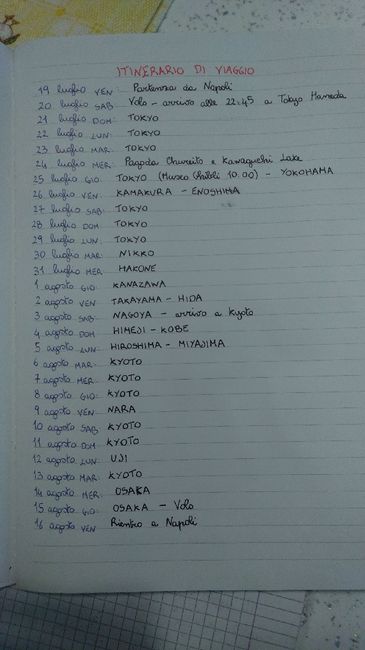 ITINERARIO DI VIAGGIO
19 luglio VEN: Partenza da Napoli
20 luglio SAB: Volo - arrivo alle 22:45 a Tokyo Haneda
21 luglio DOM: TOKYO
22 luglio LUN: TOKYO
23 luglio MAR: TOKYO
24 luglio MER: Pagoda Chureito e Kawaguchi Lake
25 luglio GIO: TOKYO (Museo Ghibli 10:00) - YOKOHAMA
26 luglio VEN: KAMAKURA - ENOSHIMA
27 luglio SAB: TOKYO
28 luglio DOM: TOKYO
29 luglio LUN: TOKYO
30 luglio MAR: NIKKO
31 luglio MER: HAKONE
1 agosto GIO: KANAZAWA
2 agosto VEN: TAKAYAMA - HIDA
3 agosto SAB: NAGOYA - arrivo a Kyoto
4 agosto DOM: HIMEJI - KOBE
5 agosto LUN: HIROSHIMA - MIYAJIMA
6 agosto MAR: KYOTO
7 agosto MER: KYOTO
8 agosto GIO: KYOTO
9 agosto VEN: NARA
10 agosto SAB: KYOTO
11 agosto DOM: KYOTO
12 agosto LUN: UJI
13 agosto MAR: KYOTO
14 agosto MER: OSAKA
15 agosto GIO: OSAKA - Volo
16 agosto VEN: Rientro a Napoli